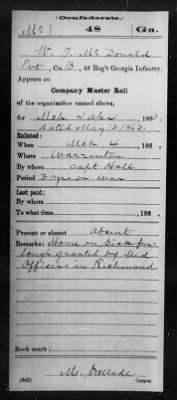 Confederate.
Mc 48 Ga.
W. T. McDonald
Pvt, Co. B, 48 Reg't Georgia Infantry.
Appears on
Company Muster Roll
of the organization named above,
for Mch & Apr, 1862.
dated May 12 1862.
Enlisted:
When Mch 4, 186
Where Warrenton
By whom Capt Hall
Period 3 yrs or war
Last paid:
By whom
To what time , 186 .
Present or absent Absent
Remarks: Home on Sick fur-
lough granted by Med
Officers in Richmond
Book mark:
(642) Copyist.